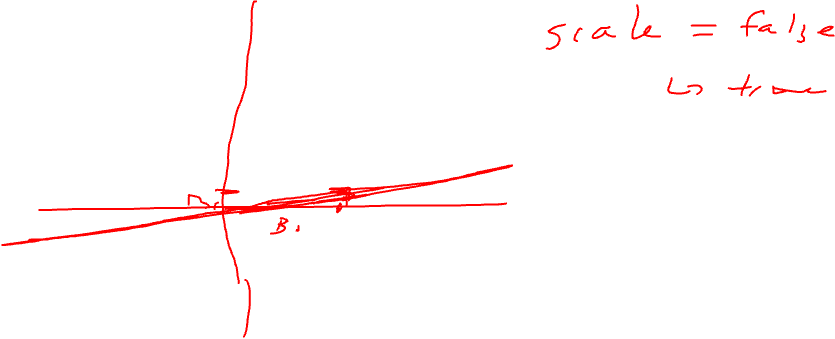 scale = false
↳ true
B₁